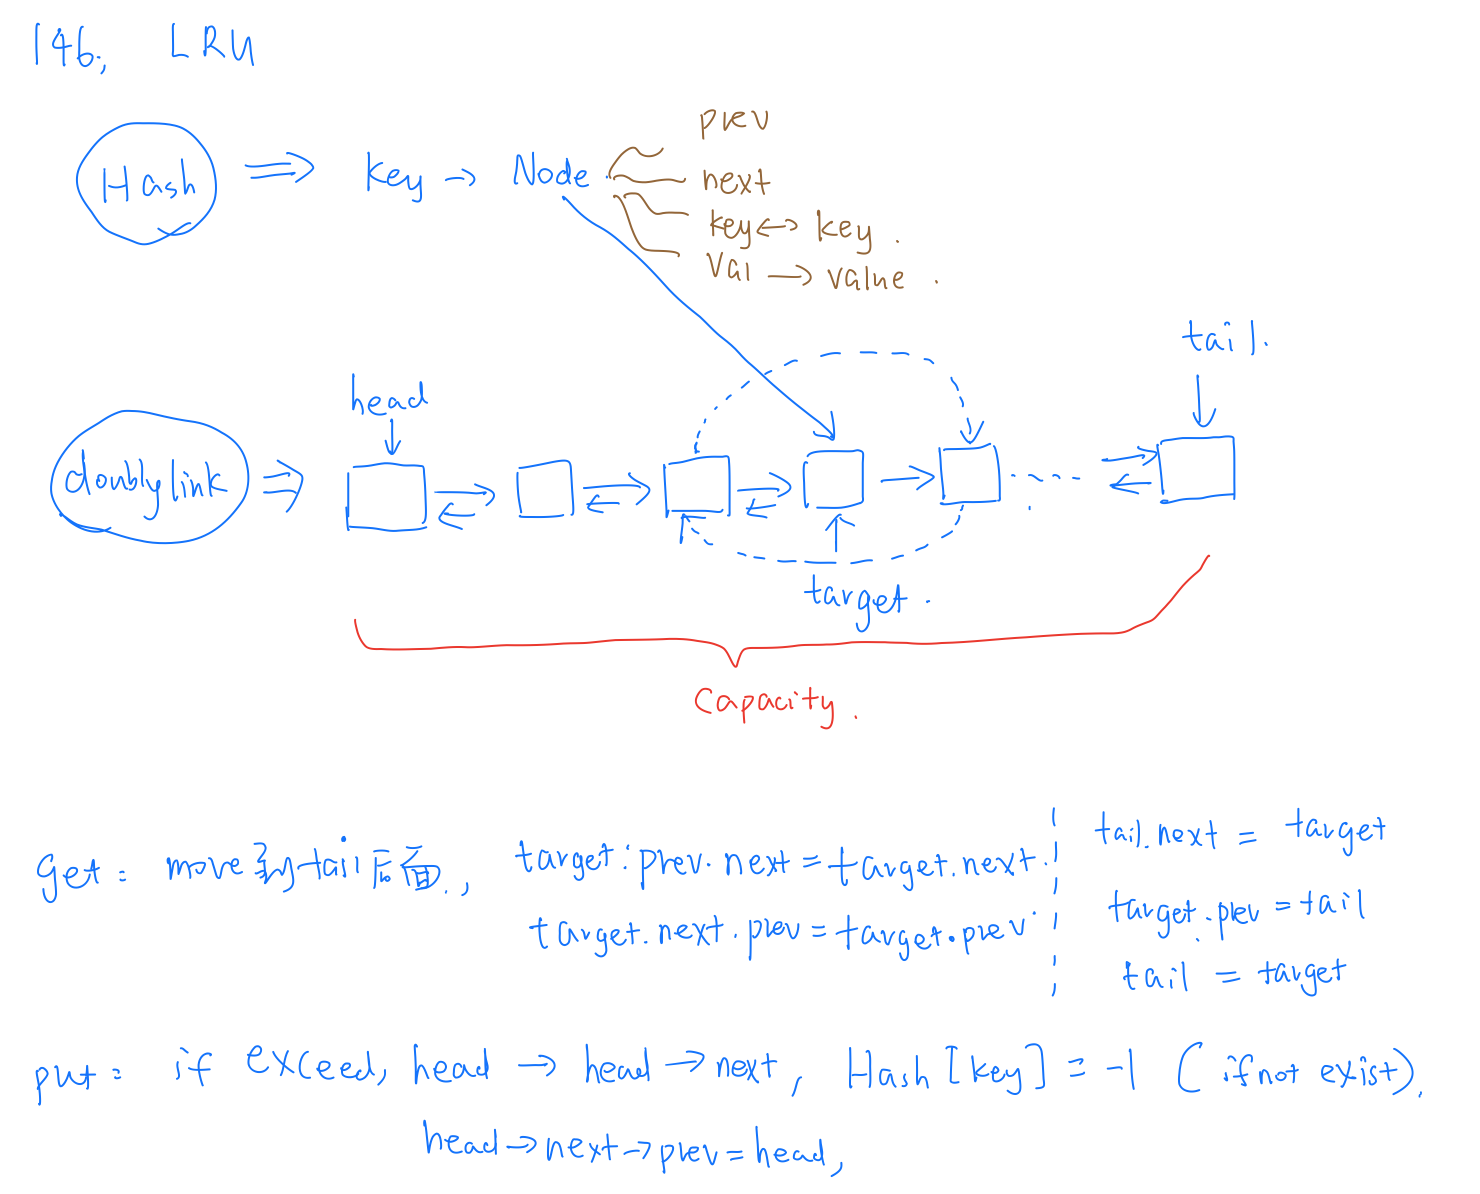 146, LRU
prev
Hash ⇒ key → Node
next
key ↔ key.
val → value.
tail.
head
doubly link ⇒
target.
Capacity.
tail.next = target
get: move到tail后面, target.prev.next = target.next.
target.prev = tail
target.next.prev = target.prev
tail = target
put: if exceed, head → head → next, Hash[key] = -1 (if not exist).
head → next → prev = head,